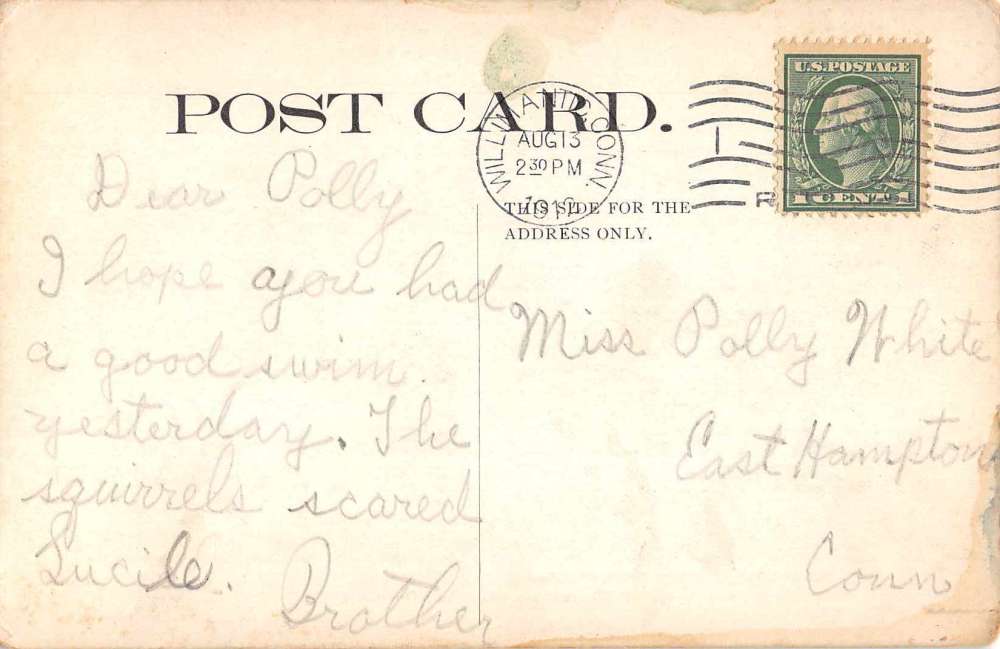 POST CARD.
WILLIMANTIC CONN.
AUG 13
2 30 PM
U.S. POSTAGE
1 CENTS 1
THIS SIDE FOR THE
ADDRESS ONLY.
Dear Polly
I hope you had
a good swim
yesterday. The
squirrels scared
Lucile.
Brother
Miss Polly White
East Hampton
Conn